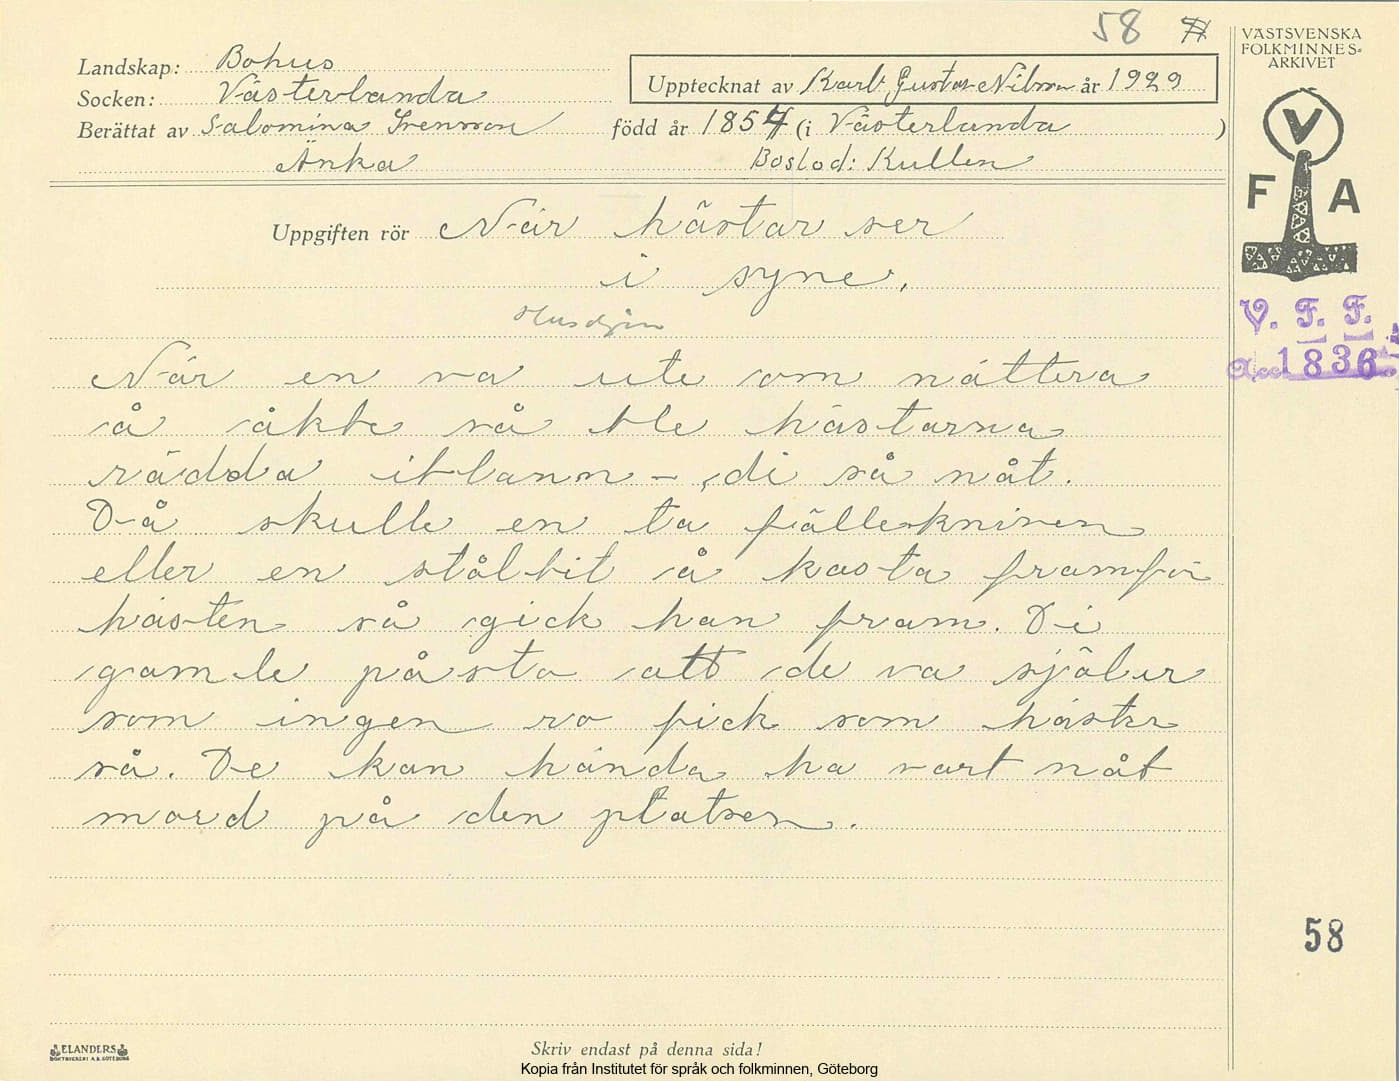 58
VÄSTSVENSKA
FOLKMINNES-
ARKIVET
Landskap: Bohus
Socken: Västerlanda
Upptecknat av Karl Gustav Nilson år 1929
Berättat av Salomina Svensson född år 1857 (i Västerlanda )
Änka Boslod: Kullen
V
F A
Uppgiften rör När hästar ser
i syne.
Husdjur
V. F. F.
Acc 1836
När en va ute om nättera
å åkte så ble hästarna
rädda iblann – di så nåt.
Då skulle en ta fällekniven
eller en stålbit å kasta framför
hästen så gick han fram. Di
gamle påsto att de va själer
som ingen ro fick som häster
så. De kan hända ha vart nåt
mord på den platsen.
58
ELANDERS
BOKTRYCKERI A.B. GÖTEBORG
Skriv endast på denna sida!
Kopia från Institutet för språk och folkminnen, Göteborg